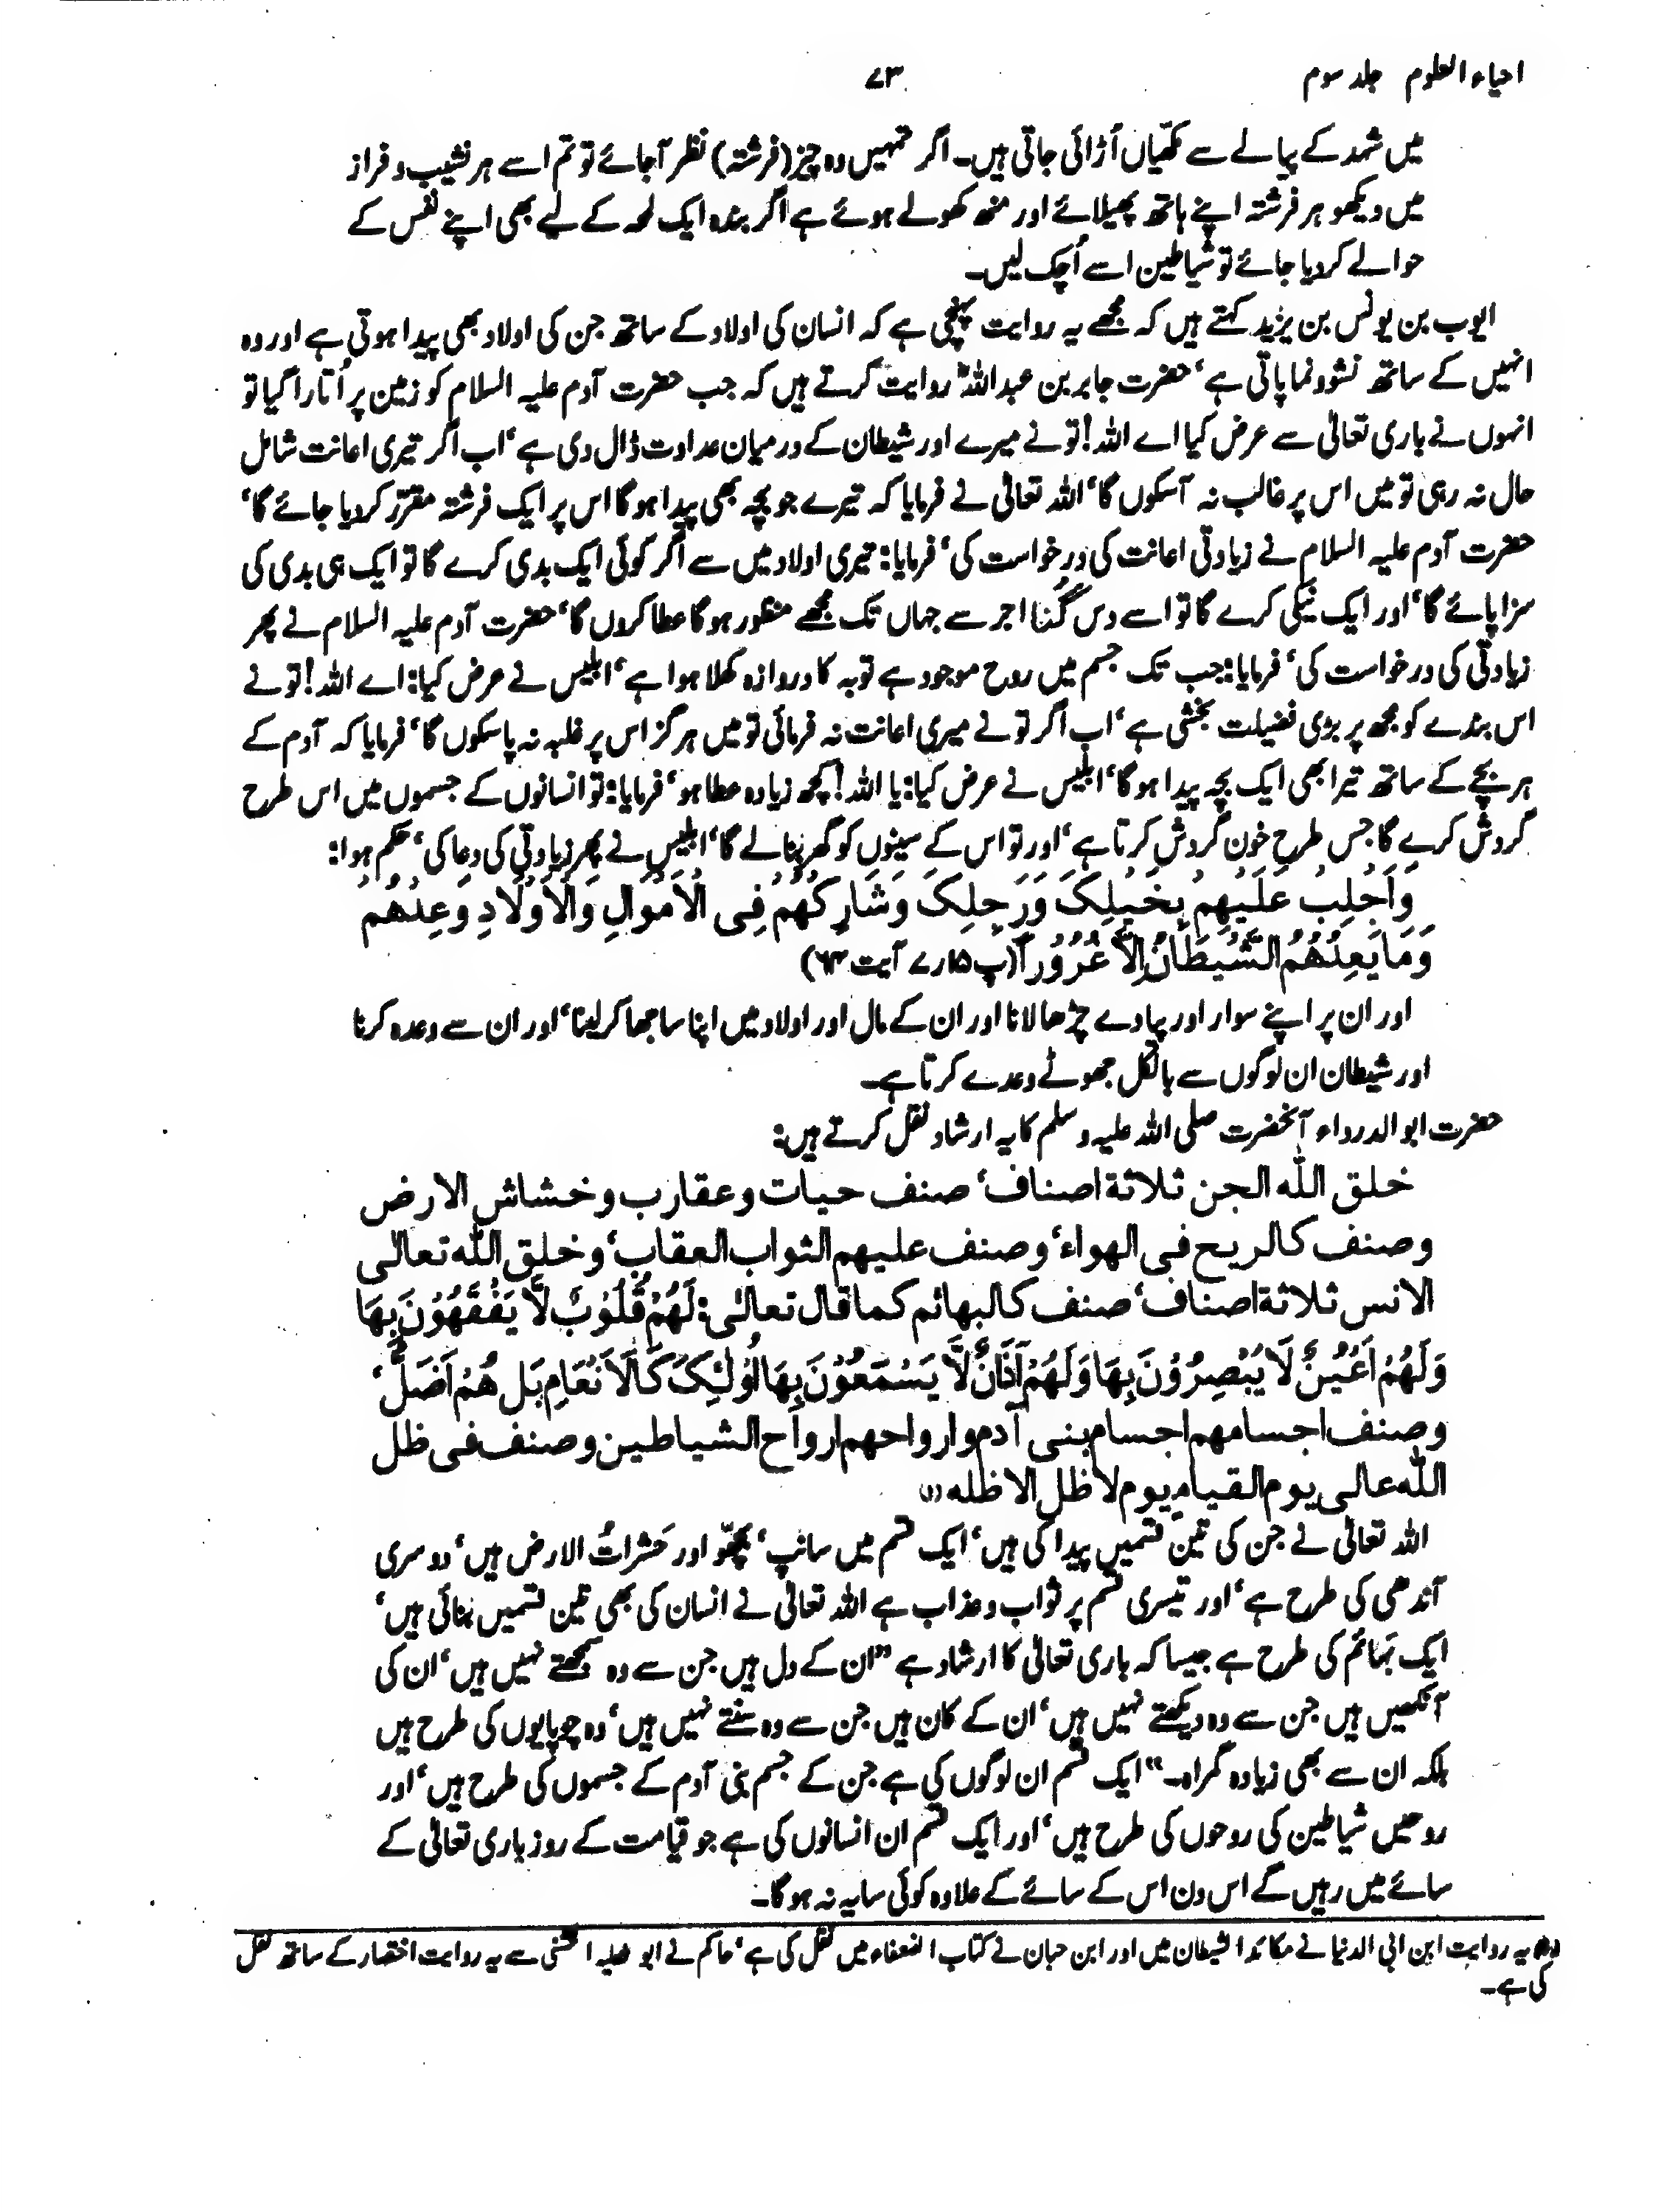 احیاء العلوم جلد سوم
۷۳
میں شہد کے پیالے سے مکھّیاں اُڑائی جاتی ہیں۔ اگر تمہیں وہ چیز (فرشتہ) نظر آجائے تو تم اسے ہر نشیب و فراز
میں دیکھو ہر فرشتہ اپنے ہاتھ پھیلائے اور منھ کھولے ہوئے ہے اگر بندہ ایک لمحہ کے لیے بھی اپنے نفس کے
حوالے کردیا جائے تو شیاطین اسے اُچک لیں۔
ایوب بن یونس بن یزید کہتے ہیں کہ مجھے یہ روایت پہنچی ہے کہ انسان کی اولاد کے ساتھ جن کی اولاد بھی پیدا ہوتی ہے اور وہ
انہیں کے ساتھ نشوونما پاتی ہے، حضرت جابر بن عبداللہؓ روایت کرتے ہیں کہ جب حضرت آدم علیہ السلام کو زمین پر اُتارا گیا تو
انہوں نے باری تعالیٰ سے عرض کیا اے اللہ! تو نے میرے اور شیطان کے درمیان عداوت ڈال دی ہے، اب اگر تیری اعانت شامل
حال نہ رہی تو میں اس پر غالب نہ آسکوں گا، اللہ تعالیٰ نے فرمایا کہ تیرے جو بچہ بھی پیدا ہوگا اس پر ایک فرشتہ مقرّر کردیا جائے گا،
حضرت آدم علیہ السلام نے زیادتی اعانت کی درخواست کی، فرمایا: تیری اولاد میں سے اگر کوئی ایک بدی کرے گا تو ایک ہی بدی کی
سزا پائے گا، اور ایک نیکی کرے گا تو اسے دس گُنا اجر سے جہاں تک مجھے منظور ہوگا عطا کروں گا، حضرت آدم علیہ السلام نے پھر
زیادتی کی درخواست کی، فرمایا: جب تک جسم میں روح موجود ہے توبہ کا دروازہ کھلا ہوا ہے، ابلیس نے عرض کیا: اے اللہ! تو نے
اس بندے کو مجھ پر بڑی فضیلت بخشی ہے، اب اگر تو نے میری اعانت نہ فرمائی تو میں ہرگز اس پر غلبہ نہ پاسکوں گا، فرمایا کہ آدم کے
ہر بچے کے ساتھ تیرا بھی ایک بچہ پیدا ہوگا، ابلیس نے عرض کیا: یا اللہ! کچھ زیادہ عطا ہو، فرمایا: تو انسانوں کے جسموں میں اس طرح
گردش کرے گا جس طرح خون گردش کرتا ہے، اور تو اس کے سینوں کو گھر بنالے گا، ابلیس نے پھر زیادتی کی دعا کی، حکم ہوا:
وَاَجْلِبْ عَلَيْهِمْ بِخَيْلِكَ وَرَجِلِكَ وَشَارِكْهُمْ فِى الْاَمْوَالِ وَالْاَوْلَادِ وَعِدْهُمْ
وَمَا يَعِدُهُمُ الشَّيْطَانُ اِلَّا غُرُوْرًا (پ۱۵ ر۷ آیت ۶۴)
اور ان پر اپنے سوار اور پیادے چڑھا لانا اور ان کے مال اور اولاد میں اپنا ساجھا کرلینا، اور ان سے وعدہ کرنا
اور شیطان ان لوگوں سے بالکل جھوٹے وعدے کرتا ہے۔
حضرت ابوالدرداء آنحضرت صلی اللہ علیہ وسلم کا یہ ارشاد نقل کرتے ہیں:
خلق الله الجن ثلاثة اصناف، صنف حيات وعقارب وخشاش الارض
وصنف كالريح فى الهواء، وصنف عليهم الثواب العقاب، وخلق الله تعالى
الانس ثلاثة اصناف، صنف كالبهائم كما قال تعالىٰ: لَهُمْ قُلُوْبٌ لَّا يَفْقَهُوْنَ بِهَا
وَلَهُمْ اَعْيُنٌ لَا يُبْصِرُوْنَ بِهَا وَلَهُمْ آذَانٌ لَّا يَسْمَعُوْنَ بِهَا اُولٰئِكَ كَالْاَنْعَامِ بَلْ هُمْ اَضَلُّ،
وصنف اجسامهم اجسام بنى آدم وارواحهم ارواح الشياطين وصنف فى ظل
الله عالى يوم القيام يوم لا ظل الا ظله (۱)
اللہ تعالیٰ نے جن کی تین قسمیں پیدا کی ہیں، ایک قسم میں سانپ، بچھّو اور حَشراتُ الارض ہیں، دوسری
آندھی کی طرح ہے، اور تیسری قسم پر ثواب و عذاب ہے اللہ تعالیٰ نے انسان کی بھی تین قسمیں بنائی ہیں،
ایک بَہائم کی طرح ہے جیسا کہ باری تعالیٰ کا ارشاد ہے "ان کے دل ہیں جن سے وہ سمجھتے نہیں ہیں، ان کی
آنکھیں ہیں جن سے وہ دیکھتے نہیں ہیں، ان کے کان ہیں جن سے وہ سنتے نہیں ہیں، وہ چوپایوں کی طرح ہیں
بلکہ ان سے بھی زیادہ گمراہ۔" ایک قسم ان لوگوں کی ہے جن کے جسم بنی آدم کے جسموں کی طرح ہیں، اور
روحیں شیاطین کی روحوں کی طرح ہیں، اور ایک قسم ان انسانوں کی ہے جو قیامت کے روز باری تعالیٰ کے
سائے میں رہیں گے اس دن اس کے سائے کے علاوہ کوئی سایہ نہ ہوگا۔
یہ روایت ابن ابی الدنیا نے مکائد الشیطان میں اور ابن حبان نے کتاب الضعفاء میں نقل کی ہے، حاکم نے ابو ثعلبہ الخشنی سے یہ روایت اختصار کے ساتھ نقل
کی ہے۔